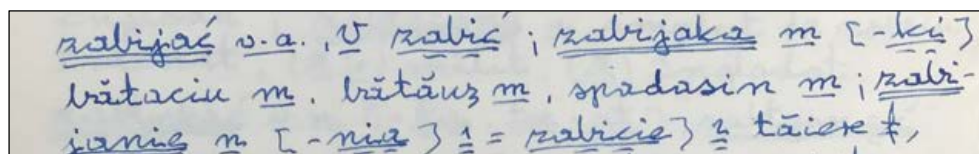 zabijać v.a., V zabić; zabijaka m [-ki]
bătăciu m, bătăuş m, spadasin m; zabi-
janie n [-nia] 1 = zabicie] 2 tăiere f,